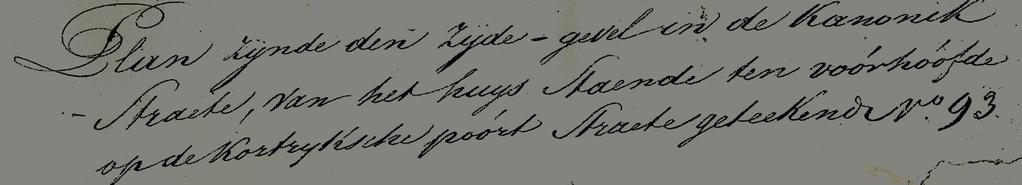 Plan zÿnde den Zÿde-gevel in de Kanonik
-Straete, van het huys staende ten voórhóófde
op de Kortryksche poórt Straete geteekend N.o 93.